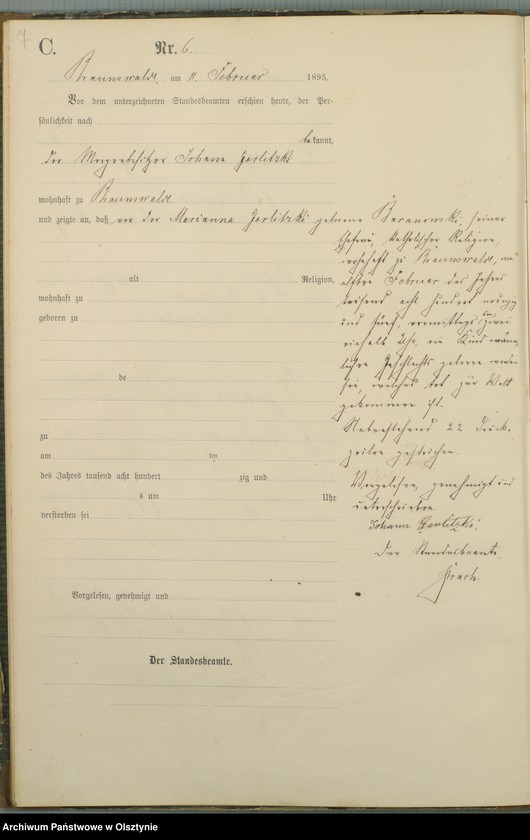 7
C.
Nr. 6.
Braunswalde, am 11. Februar 1895.
Vor dem unterzeichneten Standesbeamten erschien heute, der Per-
sönlichkeit nach
bekannt,
der Johann Gerlitzki
wohnhaft zu Braunswalde
und zeigte an, daß von der Marianna Gerlitzki geborene Baranowski, seiner
Ehefrau, katholischer Religion,
wohnhaft zu Braunswalde, am
alt Religion,
elften Februar des Jahres
wohnhaft zu
tausend acht hundert neunzig
geboren zu
und fünf, vormittags um zwei
Uhr, ein Kind männ-
lichen Geschlechts geboren worden
de
sei, welches tot zur Welt
gekommen ist.
Nebenstehend 22 Druck-
zu
zeilen gestrichen.
am ten
des Jahres tausend acht hundert zig und
Vorgelesen, genehmigt und
s um Uhr
unterschrieben
verstorben sei
Johann Gerlitzki.
Der Standesbeamte.
Vorgelesen, genehmigt und
Der Standesbeamte.
Archiwum Państwowe w Olsztynie